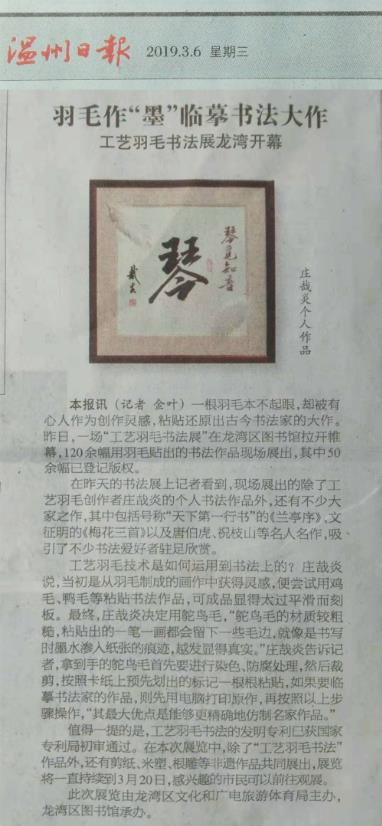 温州日报 2019.3.6 星期三
羽毛作“墨”临摹书法大作
工艺羽毛书法展龙湾开幕
琴
琴见知音
庄哉炎个人作品
本报讯（记者 金叶）一根羽毛本不起眼，却被有
心人作为创作灵感，粘贴还原出古今书法家的大作。
昨日，一场“工艺羽毛书法展”在龙湾区图书馆拉开帷
幕，120余幅用羽毛贴出的书法作品现场展出，其中50
余幅已登记版权。
在昨天的书法展上记者看到，现场展出的除了工
艺羽毛创作者庄哉炎的个人书法作品外，还有不少大
家之作，其中包括号称“天下第一行书”的《兰亭序》、文
征明的《梅花三首》以及唐伯虎、祝枝山等名人名作，吸
引了不少书法爱好者驻足欣赏。
工艺羽毛技术是如何运用到书法上的？庄哉炎
说，当初是从羽毛制成的画作中获得灵感，便尝试用鸡
毛、鸭毛等粘贴书法作品，可成品显得太过平滑而刻
板。最终，庄哉炎决定用鸵鸟毛，“鸵鸟毛的材质较粗
糙，粘贴出的一笔一画都会留下一些毛边，就像是书写
时墨水渗入纸张的痕迹，越发显得真实。”庄哉炎告诉记
者，拿到手的鸵鸟毛首先要进行染色、防腐处理，然后裁
剪，按照卡纸上预先划出的标记一根根粘贴，如果要临
摹书法家的作品，则先用电脑打印原作，再按照以上步
骤操作，“其最大优点是能够更精确地仿制名家作品。”
值得一提的是，工艺羽毛书法的发明专利已获国家
专利局初审通过。在本次展览中，除了“工艺羽毛书法”
作品外，还有剪纸、米塑、根雕等非遗作品共同展出，展览
将一直持续到3月20日，感兴趣的市民可以前往观展。
此次展览由龙湾区文化和广电旅游体育局主办，
龙湾区图书馆承办。